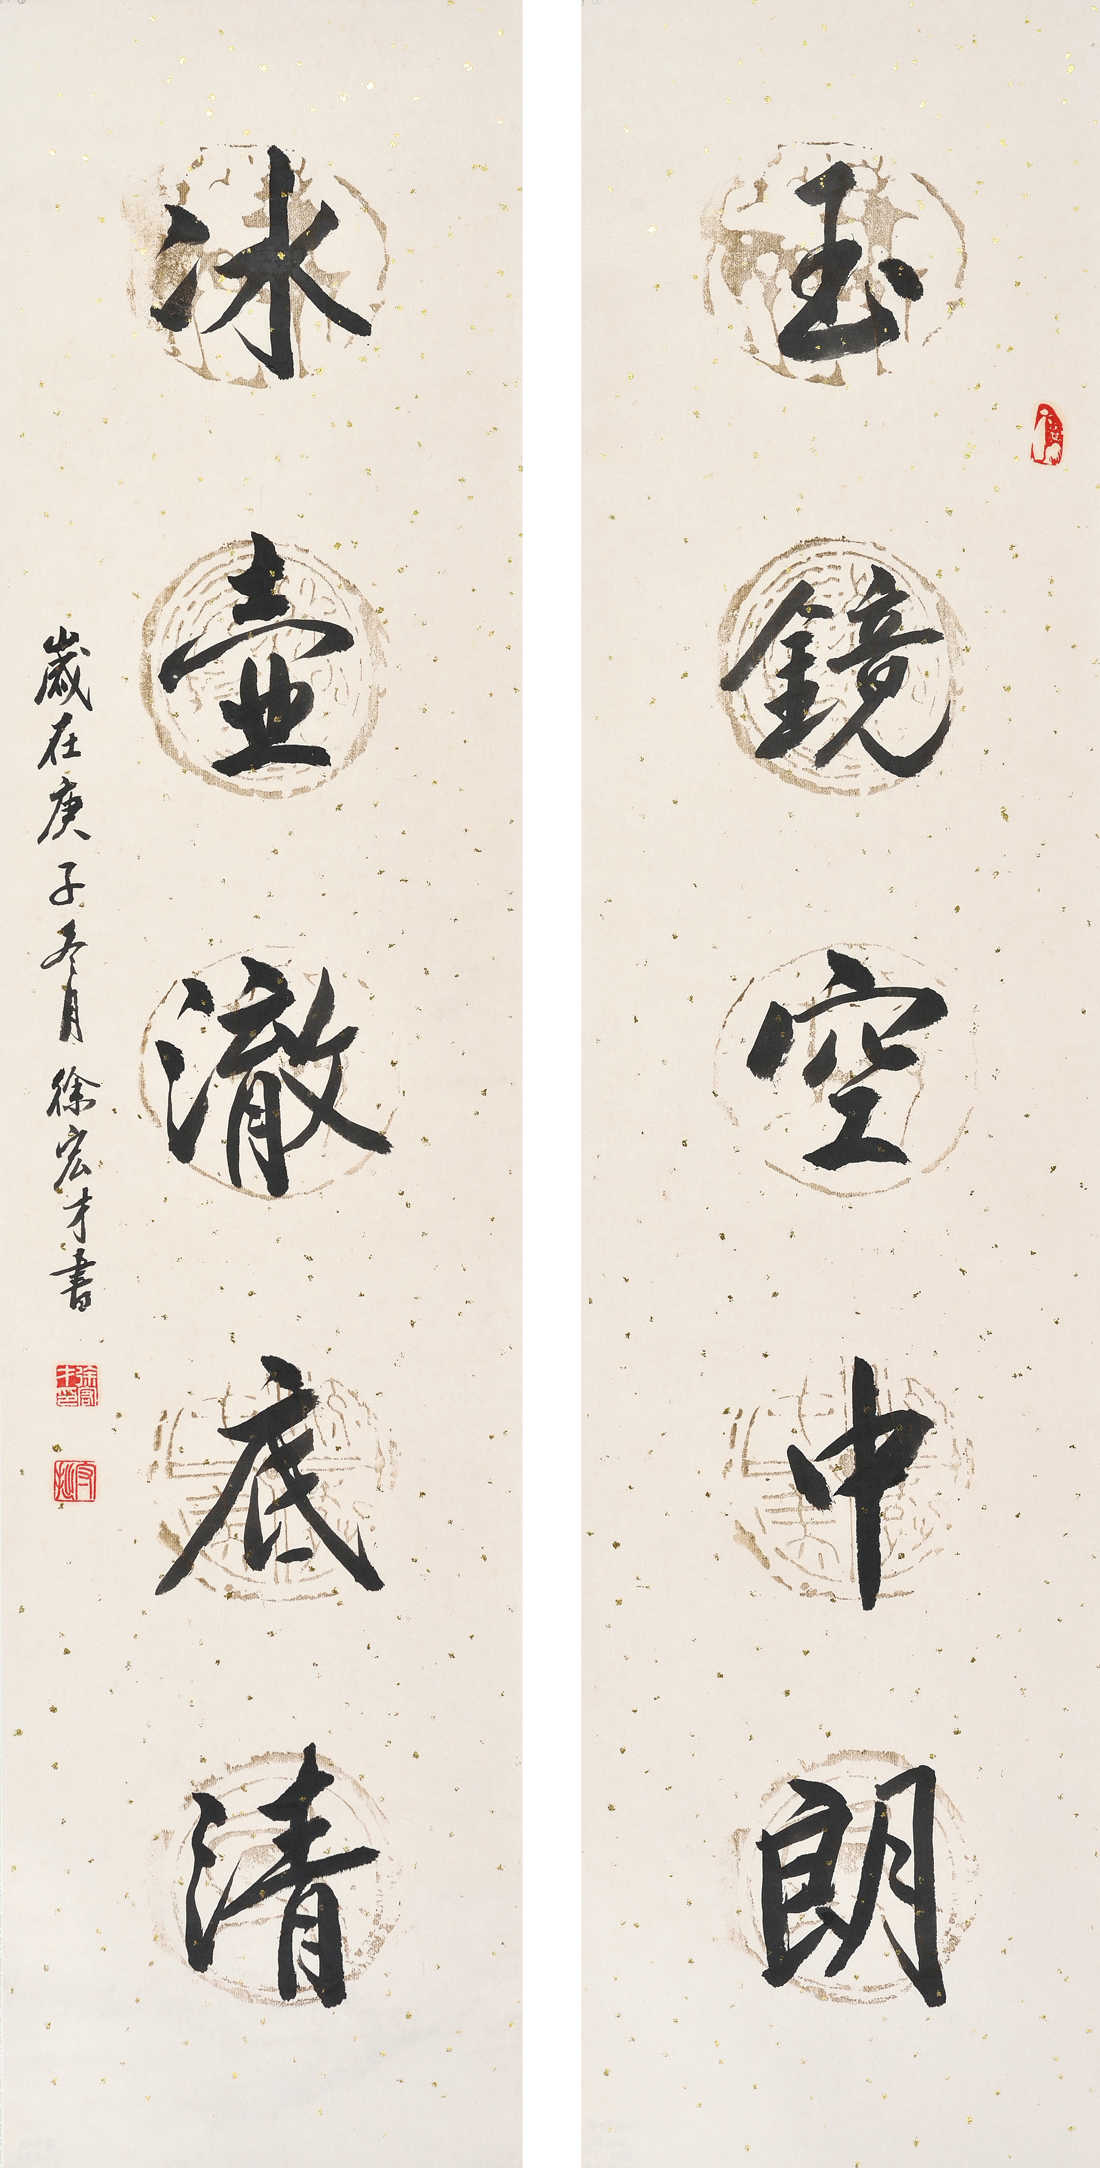 玉鏡空中朗
冰壺澈底清
歲在庚子冬月徐宏才書